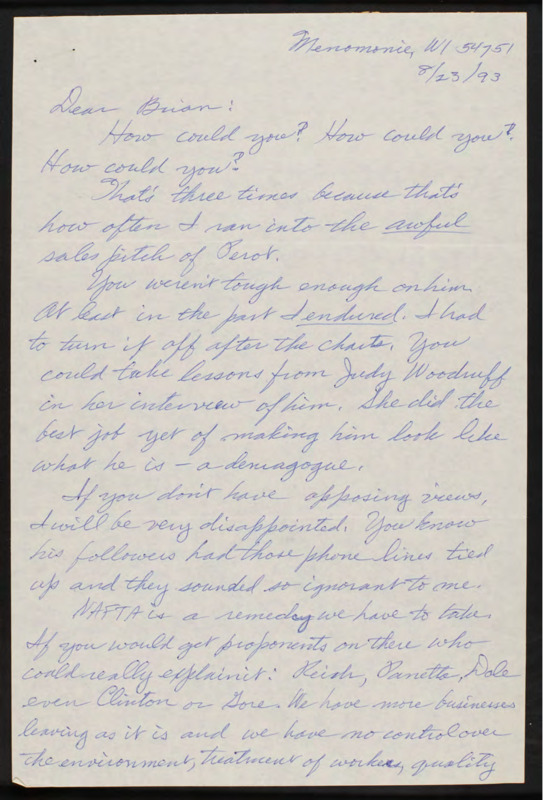 Menomonie, WI 54751
8/23/93
Dear Brian:
How could you? How could you?
How could you?
That's three times because that's
how often I ran into the awful
sales pitch of Perot.
You weren't tough enough on him.
At least in the part I endured. I had
to turn it off after the charts. You
could take lessons from Judy Woodruff
in her interview of him. She did the
best job yet of making him look like
what he is – a demagogue.
If you don't have opposing views,
I will be very disappointed. You know
his followers had those phone lines tied
up and they sounded so ignorant to me.
NAFTA is a remedy we have to take.
If you would get proponents on there who
could really explain it: Reich, Panetta, Dole
even Clinton or Gore. We have more businesses
leaving as it is and we have no control over
the environment, treatment of workers, quality